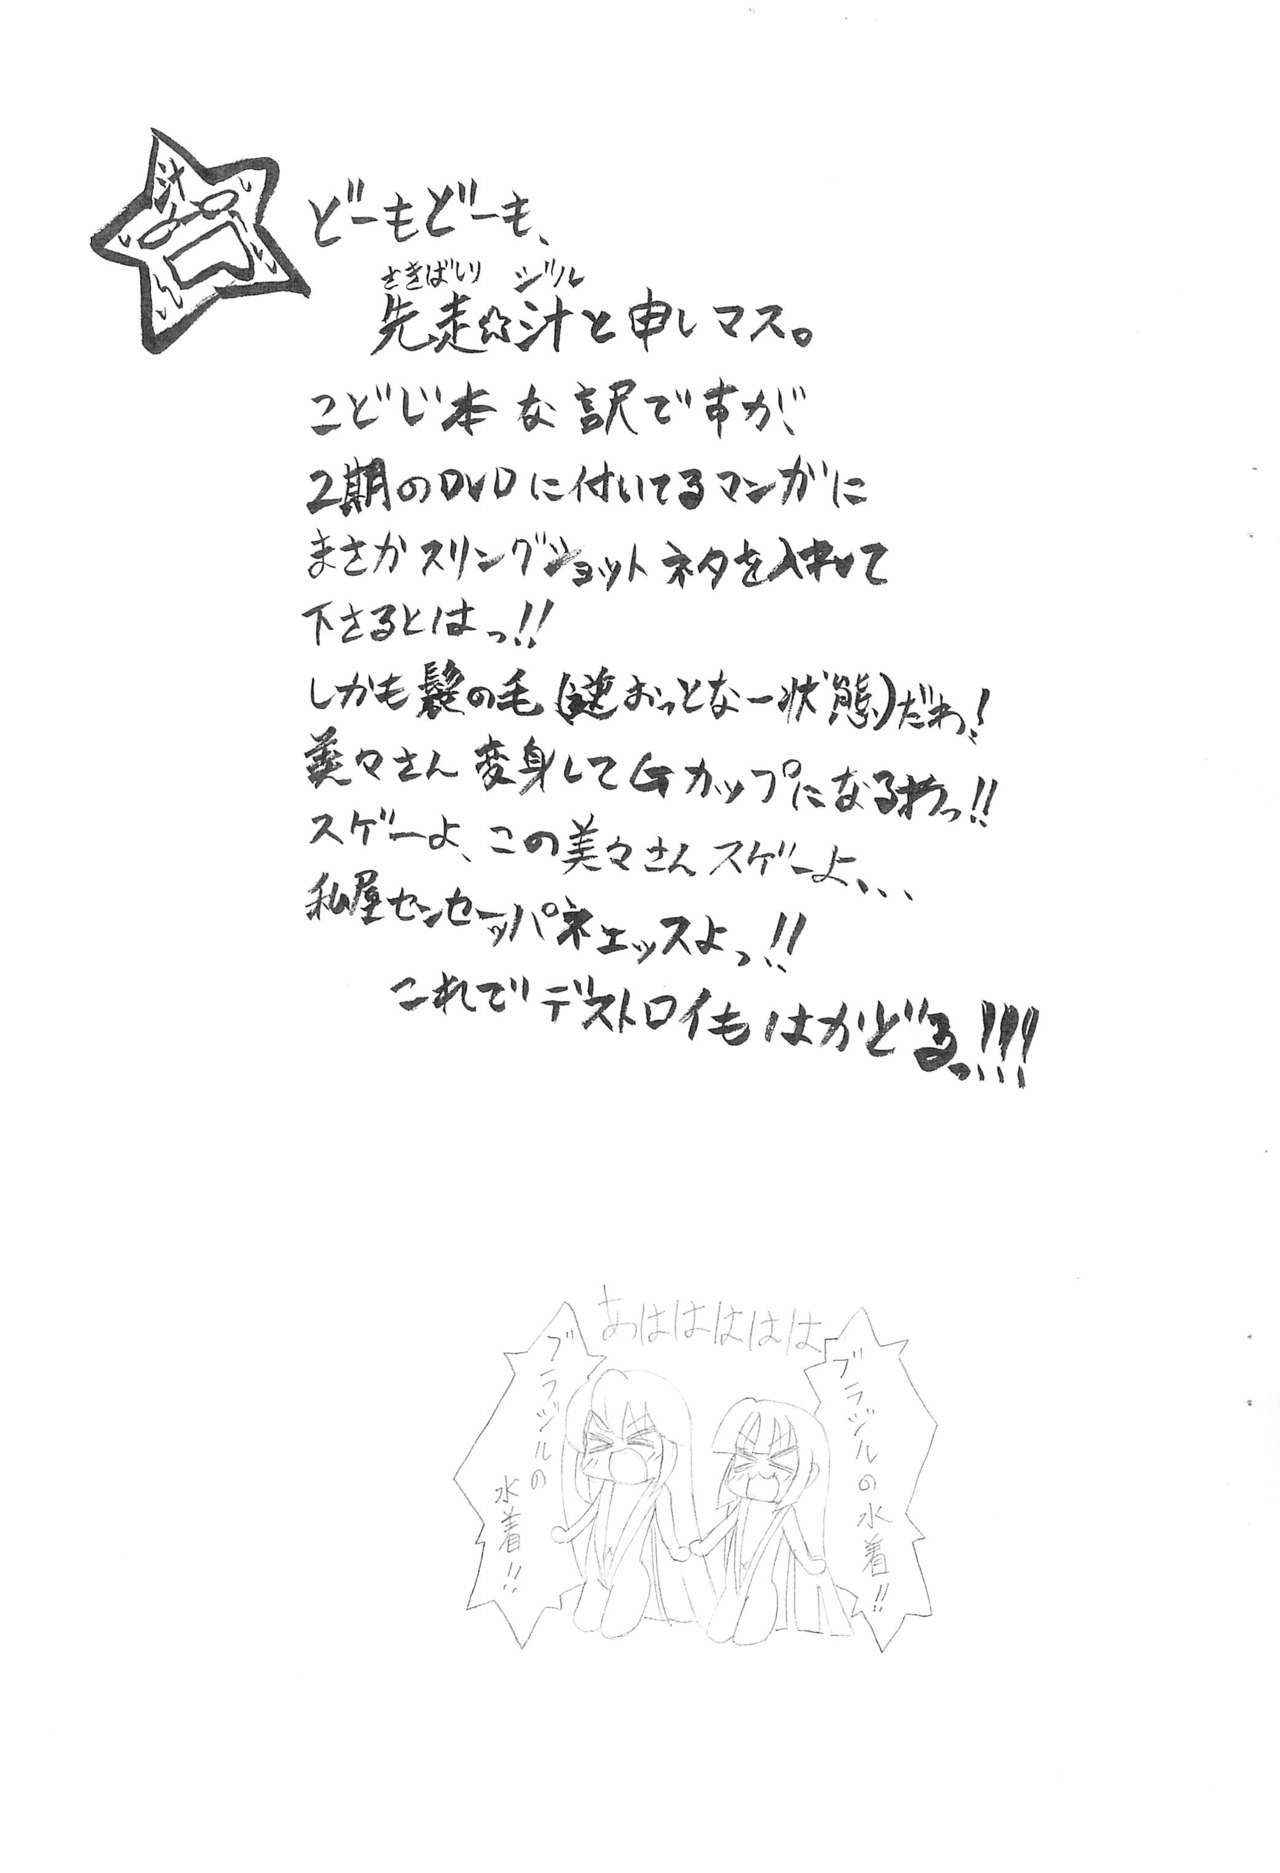 汁
どーもどーも、
さきばしり ジル
先走☆汁と申しマス。
こどじ本な訳ですが、
2期のDVDに付いてるマンガに
まさかスリングショットネタを入れて
下さるとはっ!!
しかも髪の毛(逆おっとなー状態)だわっ!
美々さん変身してGカップになるわっ!!
スゲーよ、この美々さんスゲーよ、、、
私屋センセーッパネェッスよっ!!
これでデストロイもはかどるっ!!!
あはははははは
ブラジルの水着!!
ブラジルの
水着!!